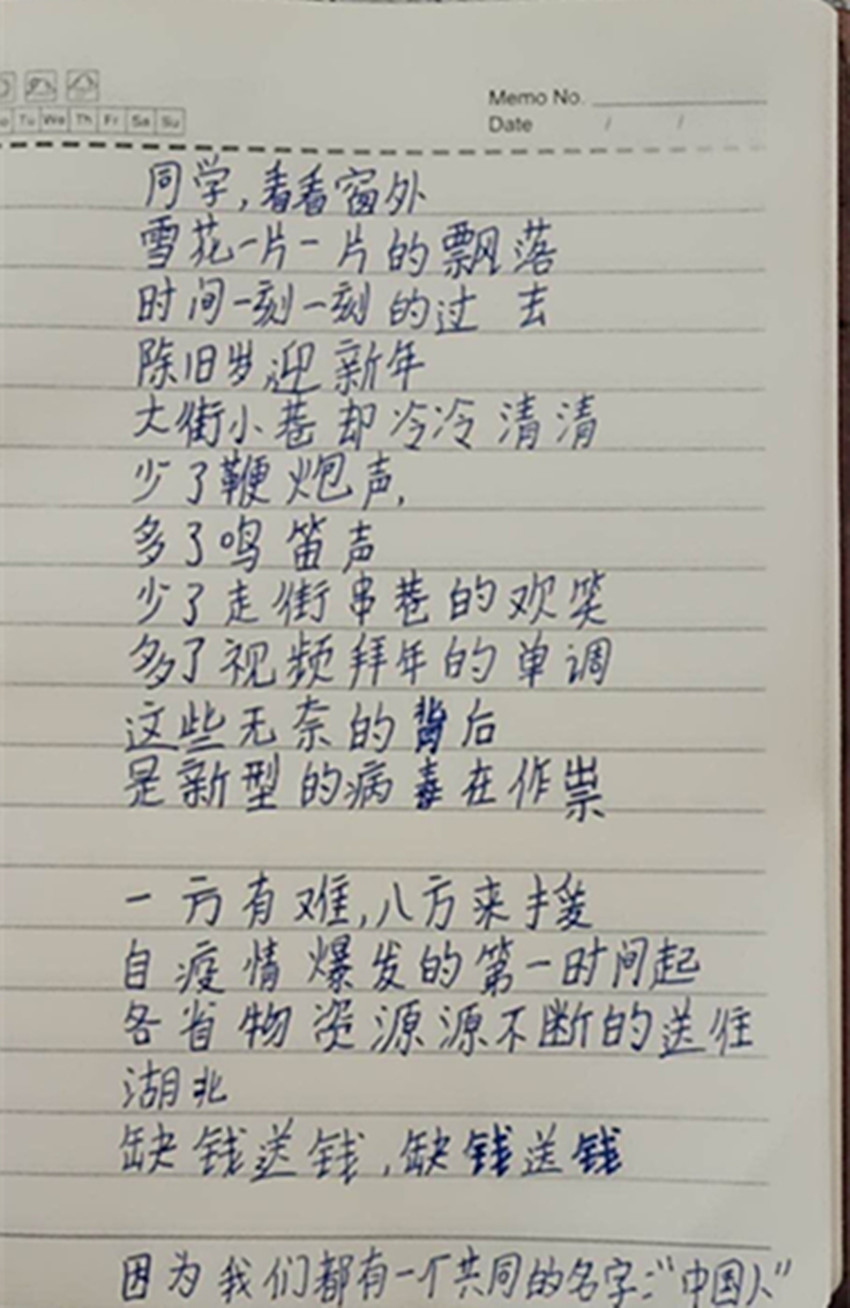 Memo No.
Tu We Th Fr Sa Su
Date / /
同学,看看窗外
雪花一片一片的飘落
时间一刻一刻的过去
除旧岁迎新年
大街小巷却冷冷清清
少了鞭炮声,
多了鸣笛声
少了走街串巷的欢笑
多了视频拜年的单调
这些无奈的背后
是新型的病毒在作祟
一方有难,八方来援
自疫情爆发的第一时间起
各省物资源源不断的送往
湖北
缺钱送钱,缺钱送钱
因为我们都有一个共同的名字:“中国人”